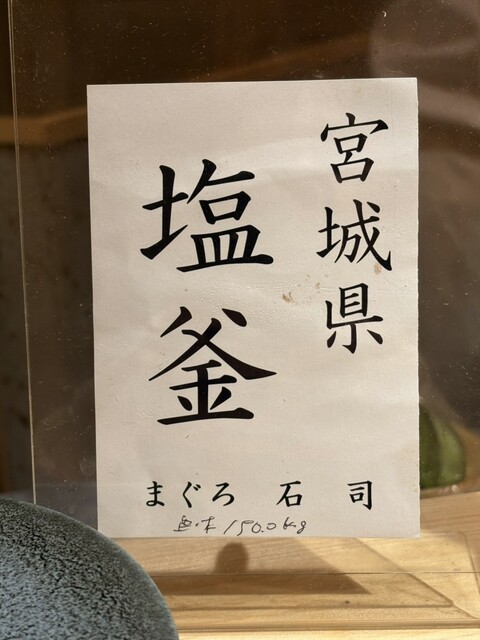 宮城県
塩釜
まぐろ 石司
150.0kg